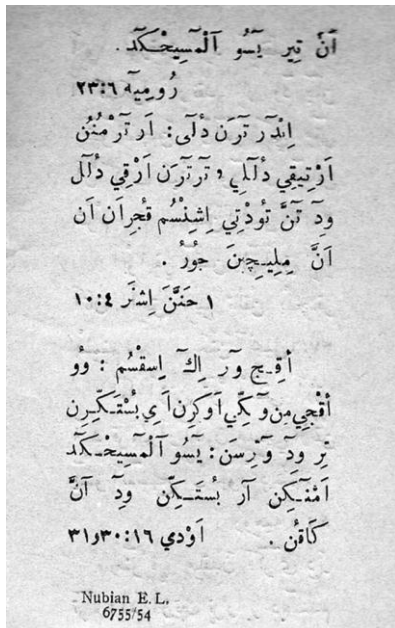 اَنَّ تِير يَسُو اَلْمَسِيحْكَدْ.
رُومِيَة ٢٣:٦
اِنْدَر تَرَن دُلَى: اَر تَرْمُنُن
اَرْتِيقِي دُلَلِي, تَر تَرَن اَرْقِي دُلَل
وِدَ تَنَّ تُودْتِي اِشِنْسُم قُجِرَان اَن
اَنَّ مِلِيچِنَ جُورُ.
١ حَنَّنَ اِشْتَر ١٠:٤
أَقِج وَر اِكَ اِسِقْسُم: وُو
أَقْجِي مِن وَكِّي اَوكِرِن اَي بُسْتَكِّرِن
تِر وِدَ وَرِسَن: يَسُو اَلْمَسِيحْكَدْ
اَمْنَكِن اَر بُسْتَكِّن وِدَ اَنَّ
كَاقُن. اَوْدِي ٣٠:١٦و٣١
Nubian E. L.
6755/54